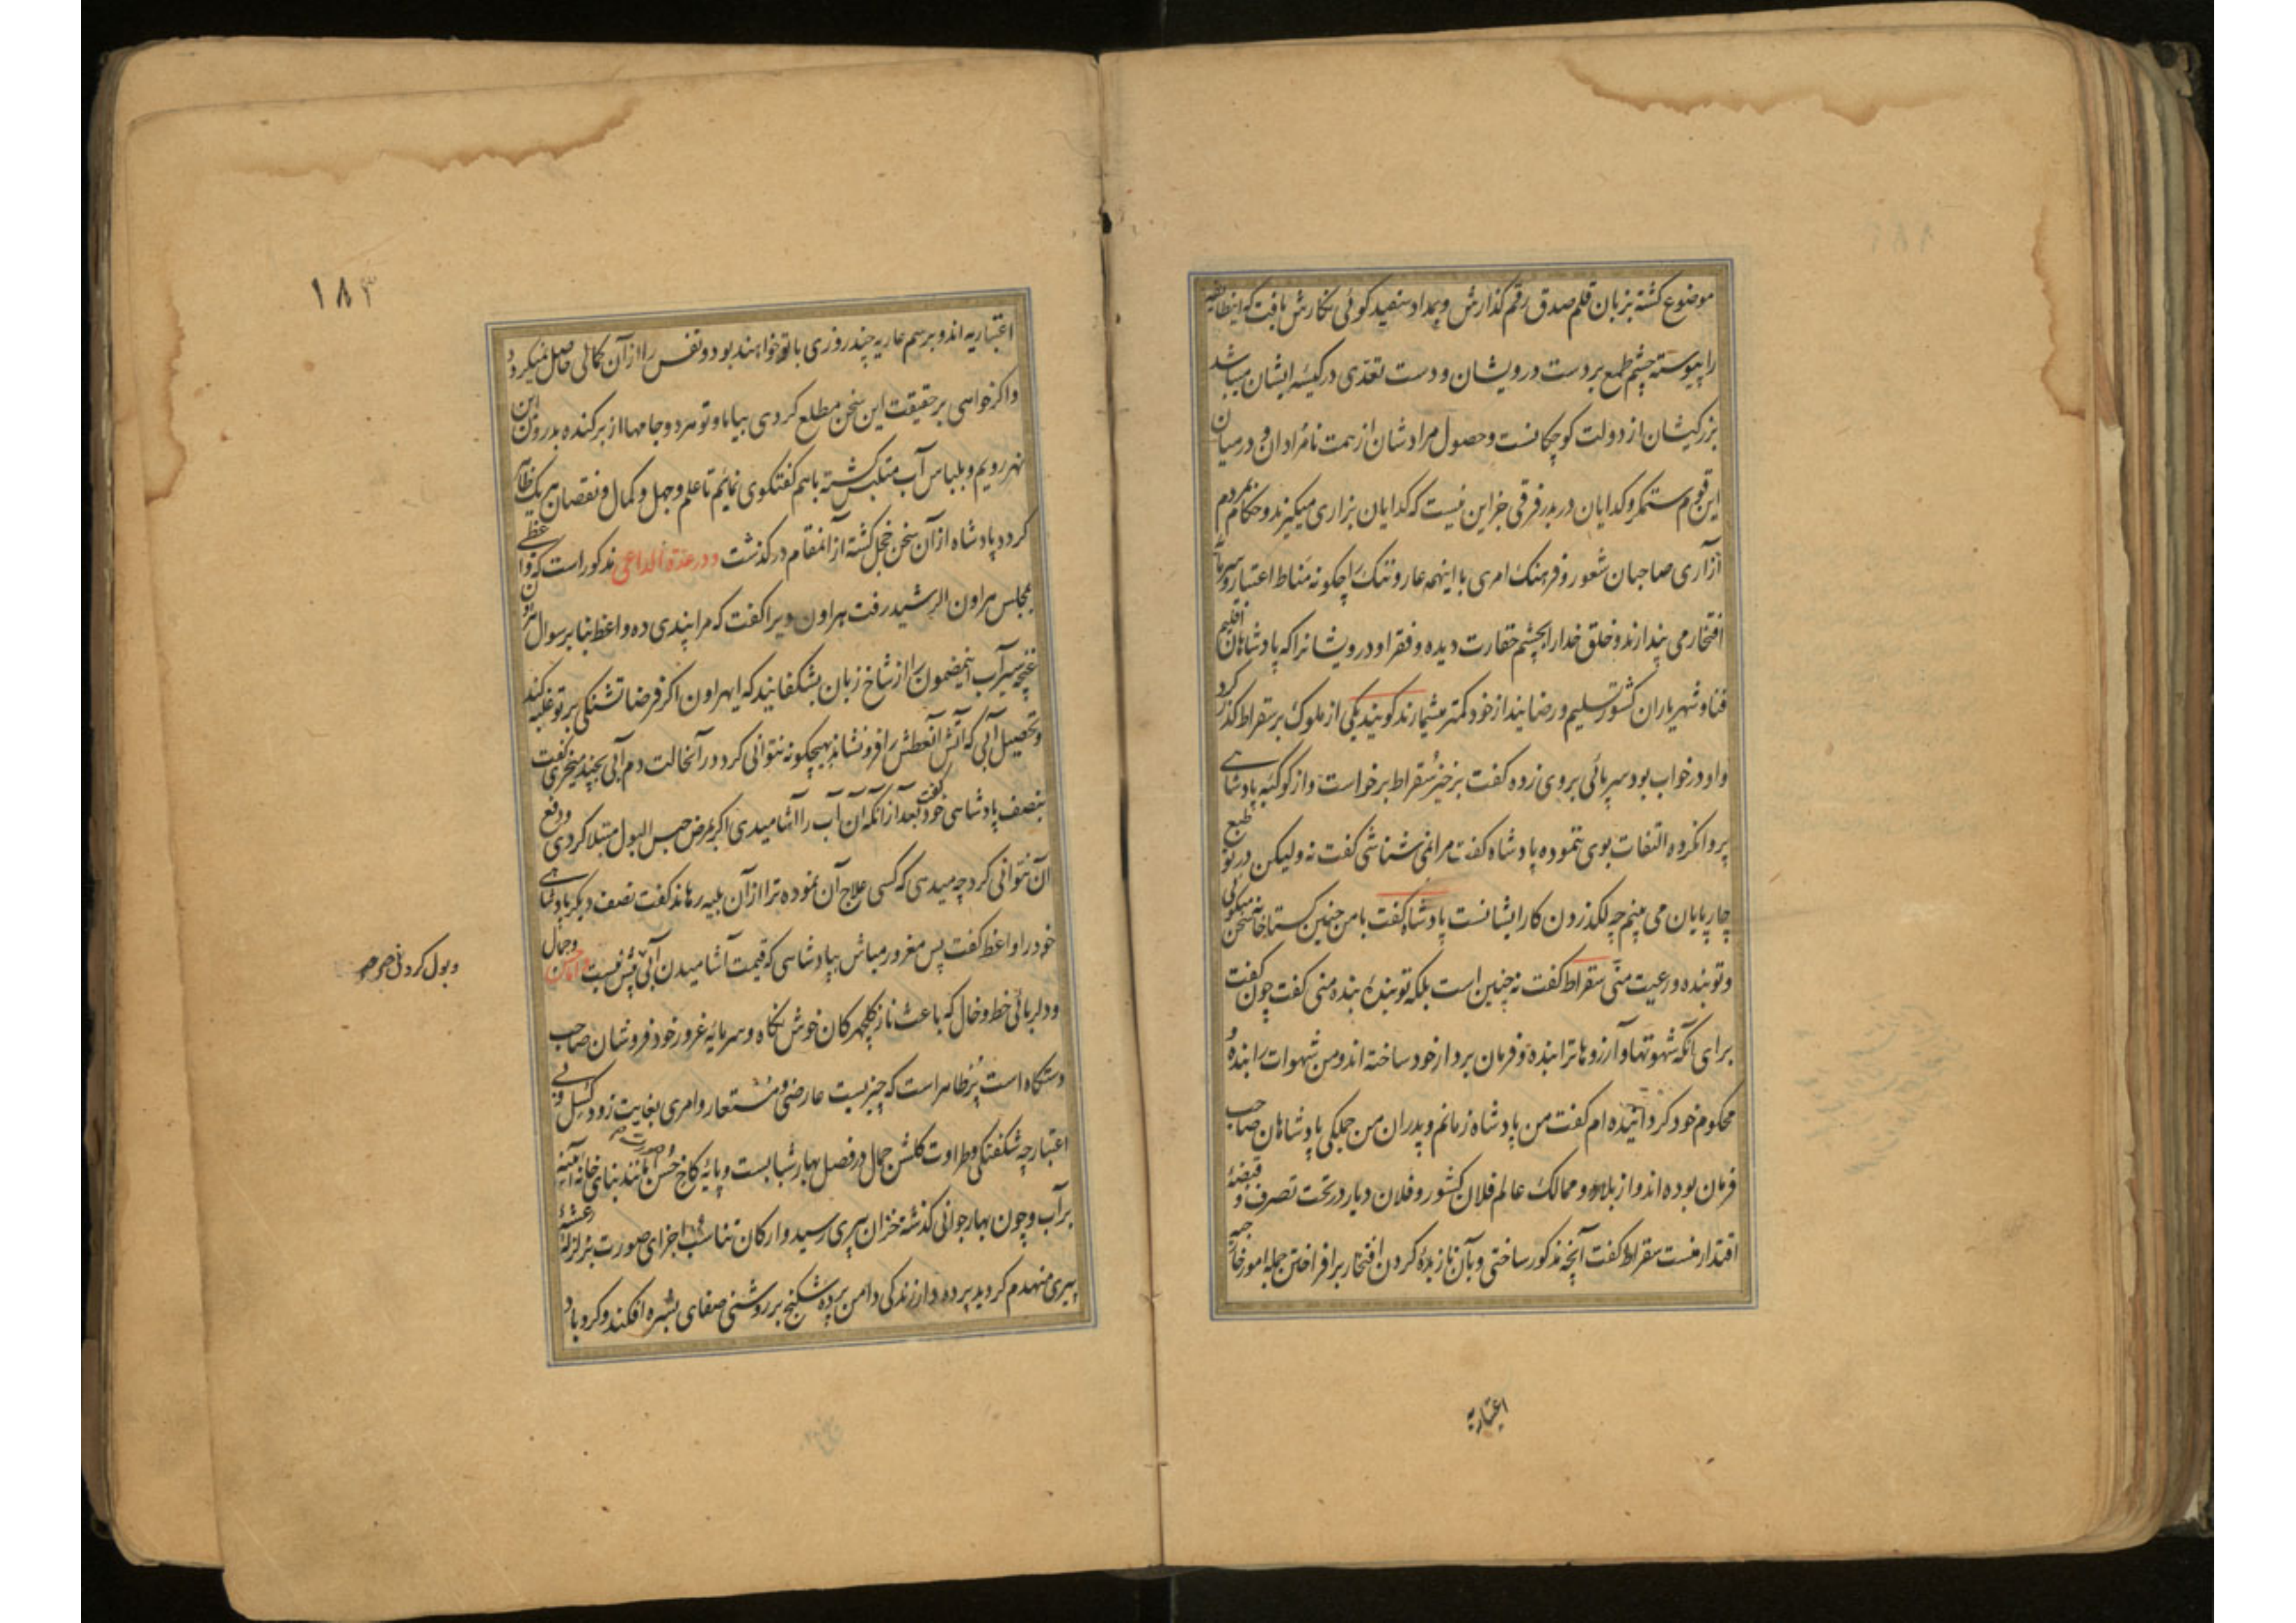 موضوع کشته بزبان قلم صدق رقم کذارش و بمداد سفید کوئی نکارش یافت که اینطایفه
را پیوسته چشم طمع بر دست درویشان و دست تعدّی در کیسهٔ ایشان میباشد
بزرکیشان از دولت کوچکانست و حصول مرادشان از همت نامرادان و در میان
این قوم ستمکر و کدایان در بدر فرقی جز این نیست که کدایان بزاری میکیرند و حکام بمردم
آزاری صاحبان شعور و فرهنک امری با اینهمه عار و ننک را چکونه مناط اعتبار و سرمایه
افتخار می پندارند و خلق خدا را بچشم حقارت دیده و فقرا و درویشانرا که پادشاهان اقلیم
فنا و شهریاران کشور تسلیم و رضایند از خود کمتر میشمارند کویند یکی از ملوک بر سقراط کذر کرد
و او در خواب بود سر پائی بر وی زده کفت برخیز سقراط برخواست و از کوکبه پادشاهی
پروا نکرده التفات بوی ننموده پادشاه کفت مرا نمی شناسی کفت نه ولیکن در تو طبع
چارپایان می بینم چه لکد زدن کار ایشانست پادشاه کفت با من چنین کستاخانه سخن میکوئی
و تو بنده و رعیت منی سقراط کفت نه چنین است بلکه تو بندهٔ بنده منی کفت چون کفت
برای آنکه شهوتها و آرزوها ترا بنده و فرمان بردار خود ساخته اند و من شهوات را بنده و
محکوم خود کردانیده ام کفت من پادشاه زمانم و پدران من جملکی پادشاهان صاحب
فرمان بوده اند و از بلاد و ممالک عالم فلان کشور و فلان دیار در تحت تصرف و قبضهٔ
اقتدار منست سقراط کفت آنچه مذکور ساختی و بآن نازیده کردن افتخار بر افراختی جمله امور خارجیه
اعتباریه
۱۸۳
اعتباریه اند و برسم عاریه چند روزی با تو خواهند بود و نفس را از آن کمالی حاصل نمیکردد
و اکر خواهی بر حقیقت این سخن مطلع کردی بیا ما و تو هر دو جامها از بر کنده بدرون این
نهر رویم و بلباس آب متلبس کشته با هم کفتکوی نمائیم تا علم و جهل و کمال و نقصان هر یک ظاهر
کردد پادشاه از آن سخن خجل کشته از آنمقام در کذشت و در عدة الداعی مذکور است که واعظی
بمجلس هراون الرشید رفت هراون ویرا کفت که مرا پندی ده واعظ بنا بر سوال هراون
غنچهٔ سیرآب اینمضمون را از شاخ زبان بشکفانید که ایهراون اکر فرضا تشنکی بر تو غلبه کند
و تحصیل آبی که آتش آنعطش را فرونشاند بهیچکونه نتوانی کرد در آنحالت دم آبی بچند میخری کفت
بنصف پادشاهی خود کفت بعد از آنکه آن آب را آشامیدی اکر بمرض حبس البول مبتلا کردی و دفع
آن نتوانی کرد چه میدهی که کسی علاج آن نموده ترا از آن بلیه رهاند کفت نصف دیکر پادشاهی
خود را واعظ کفت پس مغرور مباش بپادشاهی که قیمت آشامیدن آبی بیش نیست و اما حسن و جمال
و بول کردنی صح
و دلربائی خط و خال که باعث ناز کلچهرکان خوش نکاه و سرمایهٔ غرور خود فروشان صاحب
دستکاه است پر ظاهر است که چیزیست عارضی و مستعار و امری بغایت زود کسل و بی
اعتبار چه شکفتکی و طراوت کلشن جمال در فصل بهار شبابست و پایهٔ کاخ حسن صورت مانند بنای خانه آئینه
بر آب و چون بهار جوانی کذشته خزان پیری رسید و ارکان تناسب اجزای صورت بزلزلهٔ رعشهٔ
پیری منهدم کردید پرده دار زندکی دامن پرده شکنج بر روشنی صفای بشره افکند و کرد باد